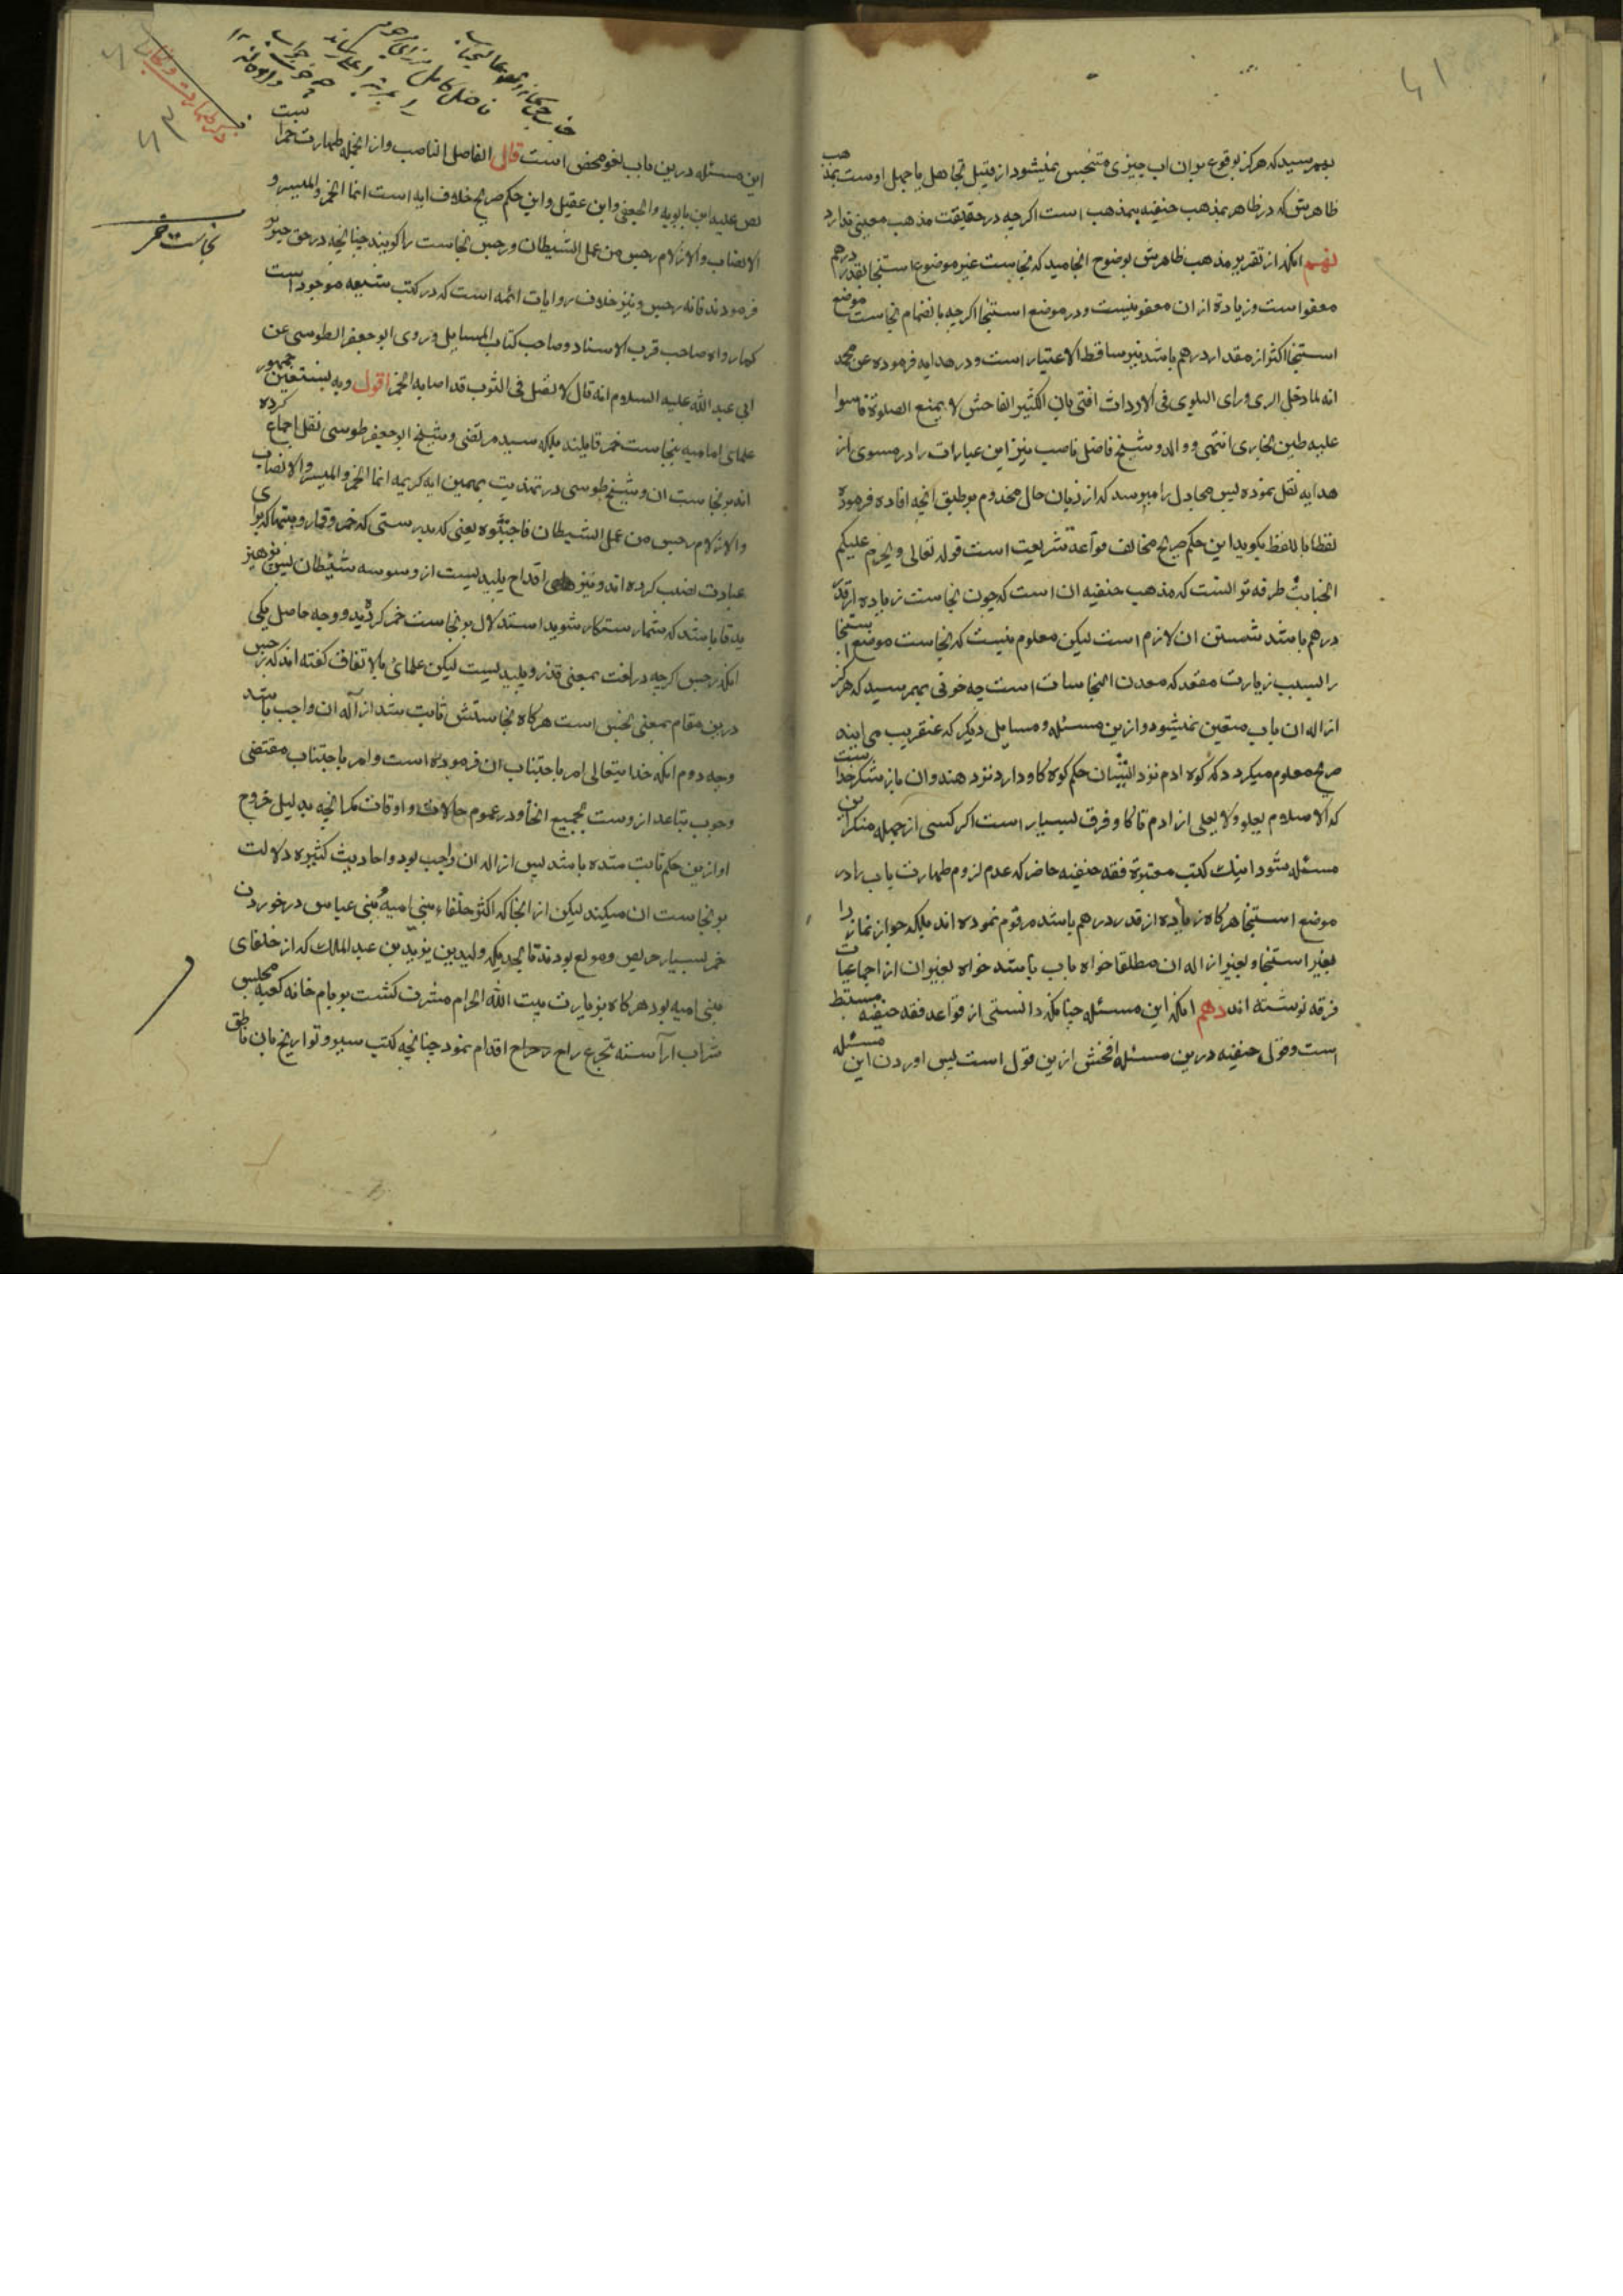 بهمرسید که هرکز بوقوع بران اب چیزی متنجس نمیشود از قبیل تجاهل یا جهل اوست بمذهب
ظاهریش که در ظاهر بمذهب حنفیه بمذهب است اکرچه در حقیقت مذهب معینی ندارد
نهم انکه از تقریر مذهب ظاهریش بوضوح انجامید که نجاست غیر موضوع استنجا بقدر درهم
معفو است و زیاده از ان معفو نیست و در موضع استنجا اکرچه بانضمام نجاست موضع
استنجا اکثر از مقدار درهم باشد نیز ساقط الاعتبار است و در هدایه فرموده عن محمد
انه لما دخل الری و رای البلوی فی الاروات افتی بان الکثیر الفاحش لا یمنع الصلوة قاسوا
علیه طین بخاری انتهی و والد و شیخ فاضل ناصب نیز این عبارات را در مسوی از
هدایه نقل نموده پس مجادل را میرسد که از زبان حال مخدوم بر طبق انچه افاده فرموده
لفظا بلفظ بکوید این حکم صریح مخالف قواعد شریعت است قوله تعالی و یحرم علیکم
الخبائث طرفه تر انست که مذهب حنفیه ان است که چون نجاست زیاده از قدر
درهم باشد شستن ان لازم است لیکن معلوم نیست که نجاست موضع استنجا
را بسبب زیارت مقعد که معدن النجاسات است چه خوفی بهمرسید که هرکز
ازاله ان باب متعین نمیشود و ازین مسئله و مسایل دیکر که عنقریب می اینه
صریح معلوم میکردد که کوه ادم نزد ایشان حکم کوه کاو دارد نزد هندوان باز شکر خدا ست
که الاسلام یعلو ولا یعلی از ادم تا کاو فرق بسیار است اکر کسی از جمله منکران این
مسئله شود اینک کتب معتبرة فقه حنفیه حاضر که عدم لزوم طهارت باب را در
موضع استنجا هرکاه زیاده از قدر درهم باشد مرقوم نموده اند بلکه جواز نماز را
بغیر استنجا و بغیر ازاله ان مطلقا خواه باب باشد خواه بغیر ان از اجماعیات
فرقه نوشته اند دهم انکه این مسئله چنانکه دانستی از قواعد فقه حنفیه مستنبط
است و قول حنفیه درین مسئله افحش ازین قول است پس اوردن این مسئله
این مسئله درین باب لغو محض است قال الفاضل الناصب و از انجمله طهارت خمر است
نص علیه ابن بابویه والجعفی وابن عقیل و این حکم صریح خلاف ایه است انما الخمر والمیسر و
الانصاب والازلام رجس من عمل الشیطان و رجس نجاست را کویند چنانچه در حق خنزیر
فرمودند فانه رجس و نیز خلاف روایات ائمه است که در کتب شیعه موجود است
کما رواه صاحب قرب الاسناد و صاحب کتاب المسایل و روی ابو جعفر الطوسی عن
ابی عبد الله علیه السلام انه قال لا تصل فی الثوب قد اصابه الخمر اقول و به نستعین جمهور
علمای امامیه بنجاست خمر قایلند بلکه سید مرتضی و شیخ ابو جعفر طوسی نقل اجماع کرده
اند بر نجاست ان و شیخ طوسی در تهذیب بهمین ایه کریمه انما الخمر والمیسر والانصاب
والازلام رجس من عمل الشیطان فاجتنبوه یعنی که بدرستی که خمر و قمار و بتها که برای
عبادت نصب کرده اند و تیرهای اقداح پلیدیست از وسوسه شیطان پس بپرهیزید
تا باشد که شما رستکار شوید استدلال بر نجاست خمر کرده و وجه حاصل یکی
انکه رجس اکرچه در لغت بمعنی قذر و پلیدیست لیکن علمای ما بالاتفاق کفته اند که رجس
درین مقام بمعنی نجس است هرکاه نجاستش ثابت شد ازاله ان واجب باشد
وجه دوم انکه خدایتعالی امر باجتناب ان فرموده است و امر باجتناب مقتضی
وجوب تباعد ازوست بجمیع انحا و در عموم حالات و اوقات مکر انچه بدلیل خروج
او ازین حکم ثابت شده باشد پس ازاله ان واجب بود و احادیث کثیره دلالت
بر نجاست ان میکند لیکن از انجا که اکثر خلفاء بنی امیه و بنی عباس در خوردن
خمر بسیار حریص و مولع بودند تا بحدیکه ولید بن یزید بن عبد الملک که از خلفای
بنی امیه بود هرکاه بزیارت بیت الله الحرام مشرف کشت بر بام خانه کعبه مجلس
شراب آراسته بتجرع راح اقدام نمود چنانچه کتب سیر و تواریخ بان ناطق
نجاست خمر